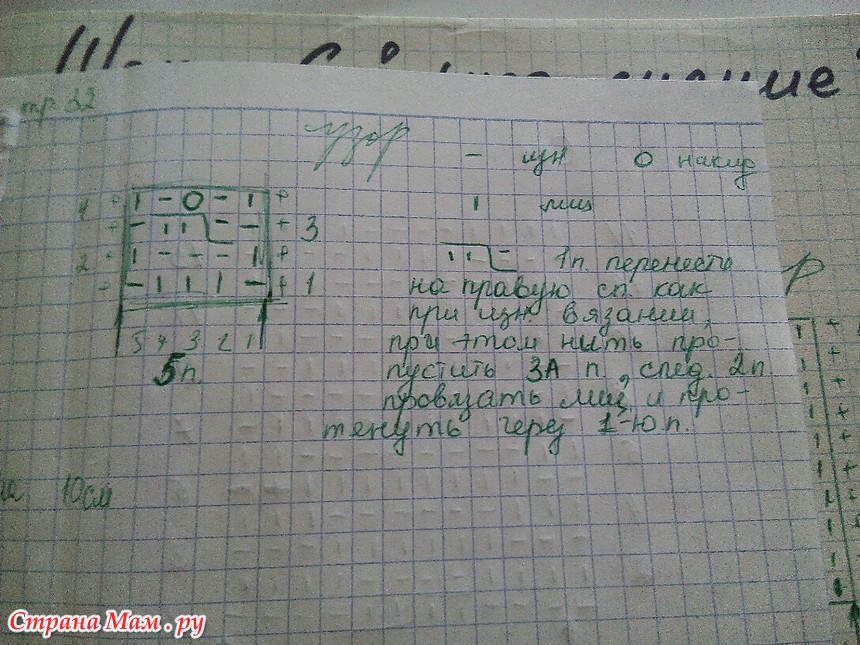 тр 32
узор
— изн O накид
ı лиц
4 + ı — O — ı +
+ — ı ı — — + 3
2 + ı — — — ı +
— — ı ı ı — + 1
5 4 3 2 1
5 п.
ı ı — 1п. перенести
на правую сп. как
при изн. вязании,
при этом нить про-
пустить ЗА п, след. 2п
провязать лиц и про-
тянуть через 1-ю п.
10см
р
Страна Мам.ру